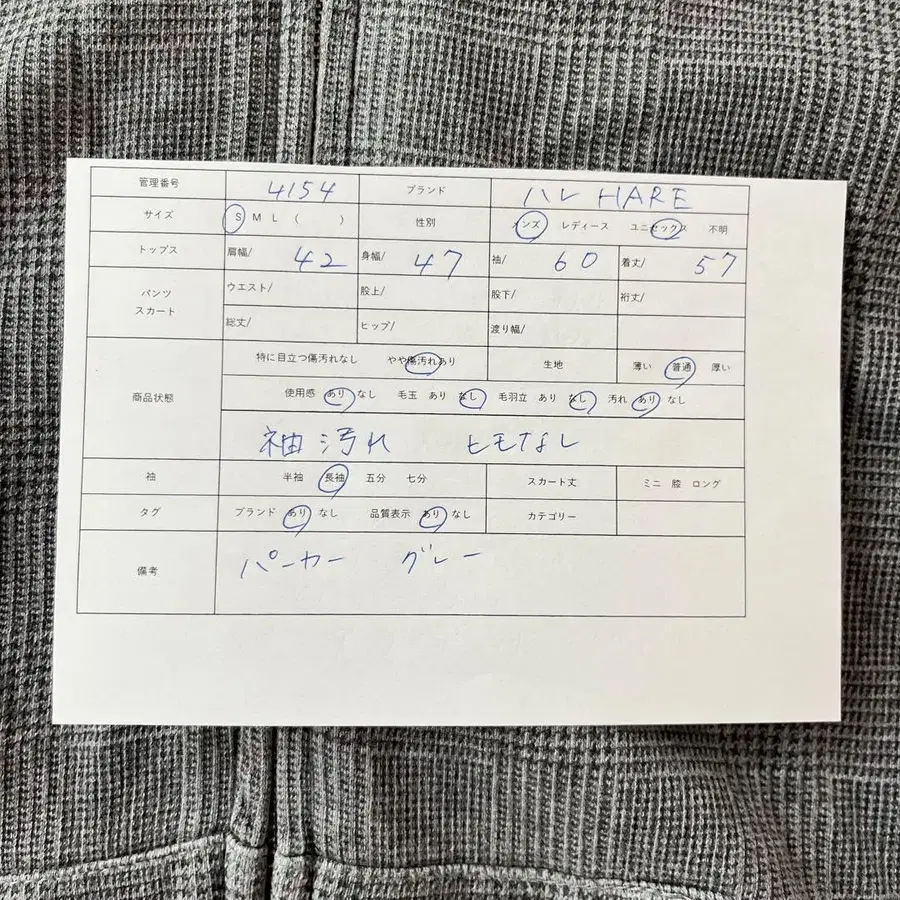 管理番号 4154 ブランド ハレ HARE
サイズ S M L ( ) 性別 メンズ レディース ユニセックス 不明
トップス 肩幅/ 42 身幅/ 47 袖/ 60 着丈/ 57
パンツ スカート ウエスト/ 股上/ 股下/ 裄丈/
総丈/ ヒップ/ 渡り幅/
商品状態 特に目立つ傷汚れなし やや傷汚れあり 生地 薄い 普通 厚い
使用感 あり なし 毛玉 あり なし 毛羽立 あり なし 汚れ あり なし
袖汚れ ヒモなし
袖 半袖 長袖 五分 七分 スカート丈 ミニ 膝 ロング
タグ ブランド あり なし 品質表示 あり なし カテゴリー
備考 パーカー グレー